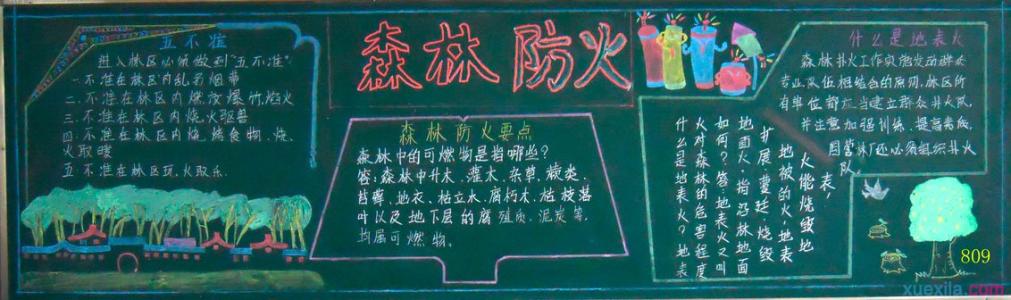 森林防火
五不准
进入林区必须做到“五不准”
一.不准在林区内乱丢烟蒂
二.不准在林区内燃放爆竹,焰火
三.不准在林区内烧火驱兽
四.不准在林区内烧、烤食物、烧
火取暖
五.不准在林区玩火取乐.
森林防火要点
森林中的可燃物是指哪些?
答:森林中乔木、灌木、杂草、蕨类、
苔藓、地衣、枯立木、腐朽木、枯枝落
叶以及地下层的腐殖质、泥炭等.
均属可燃物。
什么是地表火?地表
火对森林的危害程度
如何?答:地表火又叫
地面火,指沿林地面
扩展蔓延、烧毁
地被的火,地表
火能烧毁地
表,
什么是地表火
森林扑火工作实施发动群众
专业队伍相结合的原则,林区所
有单位都应当建立群众扑火队,
并注意加强训练,提高素质,
国营林厂还必须组织扑火
队
809
xuexila.com